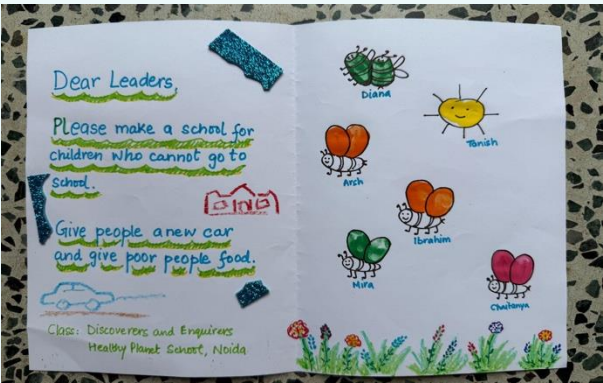 Dear Leaders
Please make a school for
children who cannot go to
school.
Give people a new car
and give poor people food.
Class: Discoverers and Enquirers
Healthy Planet School, Noida
Diana
Tanish
Arsh
Ibrahim
Mira
Chaitanya